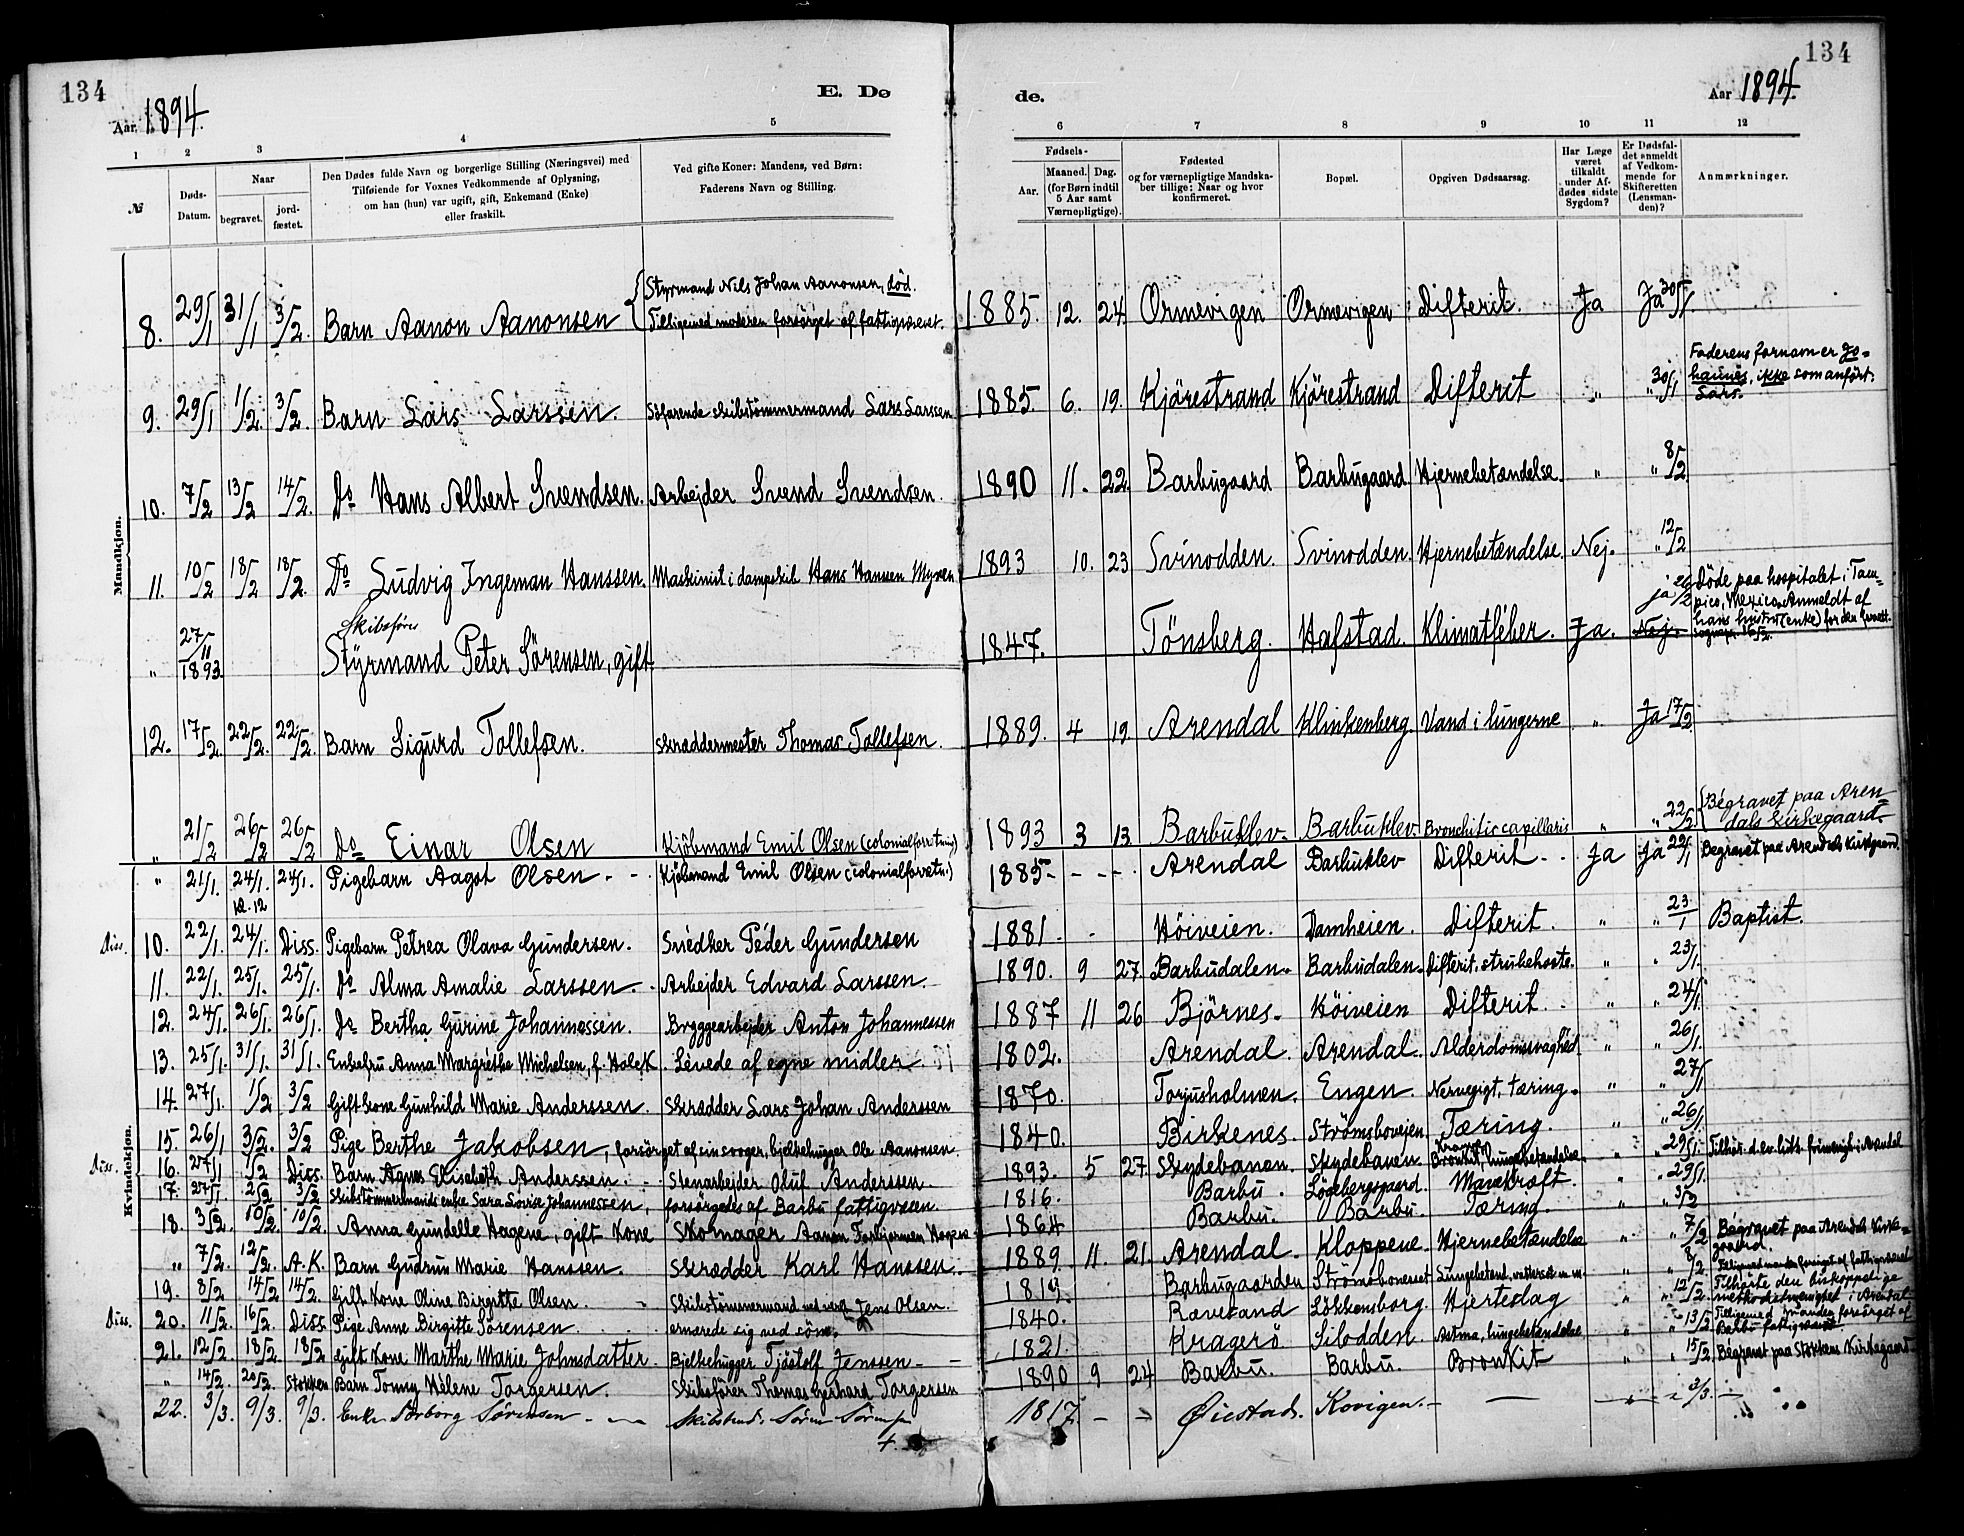 134
134
Aar 1894.
E. Dø
de.
Aar 1894.
1 2 3 4 5 6 7 8 9 10 11 12
№
Døds-Datum.
Naar
begravet.
jord-fæstet.
Den Dødes fulde Navn og borgerlige Stilling (Næringsvei) med
Tilføiende for Voxnes Vedkommende af Oplysning,
om han (hun) var ugift, gift, Enkemand (Enke)
eller fraskilt.
Ved gifte Koner: Mandens, ved Børn:
Faderens Navn og Stilling.
Fødsels-
Aar.
Maaned. Dag.
(for Børn indtil
5 Aar samt
Værnepligtige).
Fødested
og for værnepligtige Mandska-
ber tillige: Naar og hvor
konfirmeret.
Bopæl.
Opgiven Dødsaarsag.
Har Læge
været
tilkaldt
under Af-
dødes sidste
Sygdom?
Er Dødsfal-
det anmeldt
af Vedkom-
mende for
Skifteretten
(Lensman-
den)?
Anmærkninger.
Mandkjøn.
8. 29/1 31/1 3/2. Barn Aanon Aanonsen { Styrmand Nils Johan Aanonsen, død. Tilligemed moderen forsörget af fattigvæsenet. 1885. 12. 24. Ormevigen Ormevigen Difterit. Ja Ja 30/1.
9. 29/1 1/2 3/2. Barn Lars Larssen. Söfarende skibstömmermand Lars Larssen 1885. 6. 19. Kjörestrand Kjörestrand Difterit " " 30/1 Faderens fornavn er Jo=
hannes, ikke som anført:
Lars.
10. 7/2 13/2 14/2. Do Hans Albert Svendsen. Arbejder Svend Svendsen. 1890 11. 22. Barbugaard Barbugaard Hjernebetændelse. " " 8/2
11. 10/2 18/2 18/2. Do Ludvig Ingeman Hanssen. Maskinist i dampskib Hans Hanssen Myren 1893 10. 23 Svinodden. Svinodden. Hjernebetændelse. Nej. " 12/2
" 27/11 1893 Skibsförer
Styrmand Peter Sörensen, gift. 1847. Tönsberg. Hafstad. Klimatfeber. Ja. Nej. ja 26/2 Döde paa hospitalet i Tam=
pico, Mexico. Anmeldt af
hans hustru (enke) for den forsatt.
12. 17/2 22/2. 22/2. Barn Sigurd Tollefsen. Skræddermester Thomas Tollefsen. 1889. 4 19. Arendal Klinkenberg. Vand i lungerne " Ja 17/2
" 21/2 26/2 26/2 Do Einar Olsen Kjöbmand Emil Olsen (colonialforretning) 1893 3 13. Barbuklev. Barbuklev. Bronchitis capillaris " " 22/2 { Begravet paa Aren=
dals kirkegaard.
Kvindekjøn.
" 21/1. 24/1. kl. 12 24/1. Pigebarn Aagot Olsen - - Kjöbmand Emil Olsen (colonialforretn.) 1885 - - - - Arendal Barbuklev Difterit - - Ja Ja 22/1 Begravet paa Arendals Kirkegaard.
Diss. 10. 22/1. 24/1. Diss. Pigebarn Petrea Olava Gundersen. Snedker Peder Gundersen 1881. - Höiveien. Damheien. Difterit. " " 23/1 Baptist.
11. 22/1. 25/1. 25/1. Do Alma Amalie Larssen. Arbejder Edvard Larssen. 1890. 9 27. Barbudalen. Barbudalen. Difterit, strubehoste. " " 23/1.
12. 24/1. 26/1. 26/1. Do Bertha Gurine Johannessen. Bryggearbejder Anton Johannessen 1887 11 26 Björnes. Höiveien Difterit. " " 24/1
13. 25/1. 31/1. 31/1. Enkefru Anna Margrethe Michelsen, f. Holck. Levede af egne midler 1802. Arendal. Arendal. Alderdomssvaghed. " " 26/1.
14. 27/1. 1/2 3/2 Gift kone Gunhild Marie Anderssen. Skrædder Lars Johan Anderssen 1870. Torjusholmen. Engen. Nervegigt, tæring. " " 27/1
15. 26/1 3/2. 3/2 Pige Berthe Jakobsen, forsörget af sin svoger, bjelkehugger Ole Aanonsen. 1840. Birkenes. Strömsboveien Tæring. " " 26/1.
Diss. 16. 27/1 1/2 Diss. Barn Agnes Elisabeth Anderssen. - Stenarbejder Oluf Anderssen. 1893. 5 27. Skydebanen. Skydebanen. Bronkit, lungebetændelse. " " 29/1. Tilhör. d. ev. luth. frimenigh. i Arendal
17. 27/1. 2/2 3/2 Skibstömmermands enke Sara Lovise Johannessen, forsörgedes af Barbu fattigvæsen. 1816. Barbu. Lögebergsgaard. Mavekræft. " " 29/1.
18. 3/2. 10/2. 10/2. Anna Gundelle Hagene, gift Kone Skomager Aanon Torbjörnsen Hagene 1864 Barbu. Barbu. Tæring. " " 3/2
" 7/2. 12/2. A.K. Barn Gudrun Marie Hanssen. Skrædder Karl Hanssen. 1889. 11 21. Arendal. Kloppene. Hjernebetændelse " " 7/2 Begravet paa Arendals Kirke=
gaard.
19. 8/2 14/2 14/2. Gift Kone Oline Birgitte Olsen. - Skibstömmermand Jens Olsen. 1819. Barbugaarden Strömsbonesset Lungebetænd. " " 8/2 Tilligemed manden forsörget af fattigvæsenet
Diss. 20. 11/2. 16/2. Diss. Pige Anne Birgitte Sörensen. ernærede sig ved söm. 1840. Rævesand Lökkensborg. Hjerteslag " " 12/2. Tilhörte den biskoppelige
methodistmenighet i Arendal
21. 12/2. 18/2. 18/2 Gift Kone Marthe Marie Johnsdatter. Bjelkehugger Tjöstolf Jenssen - - 1821. Kragerö Silodden. Astma, lungebetændelse " " 13/2. Tilligemed manden forsörget af
Barbu fattigvæsen
" 14/2. 20/2. Stokken Barn Tonny Helene Torgersen. Skibsförer Thomas Gerhard Torgersen 1890 9 24 Barbu. Barbu. Bronkit " " 15/2. Begravet paa Stokkens Kirkegaard
22. 3/3. 9/3. 9/3. Enke Sörensen - Sören 1817. - - Øiestad. Kovigen. - - - " - " 3/3. -